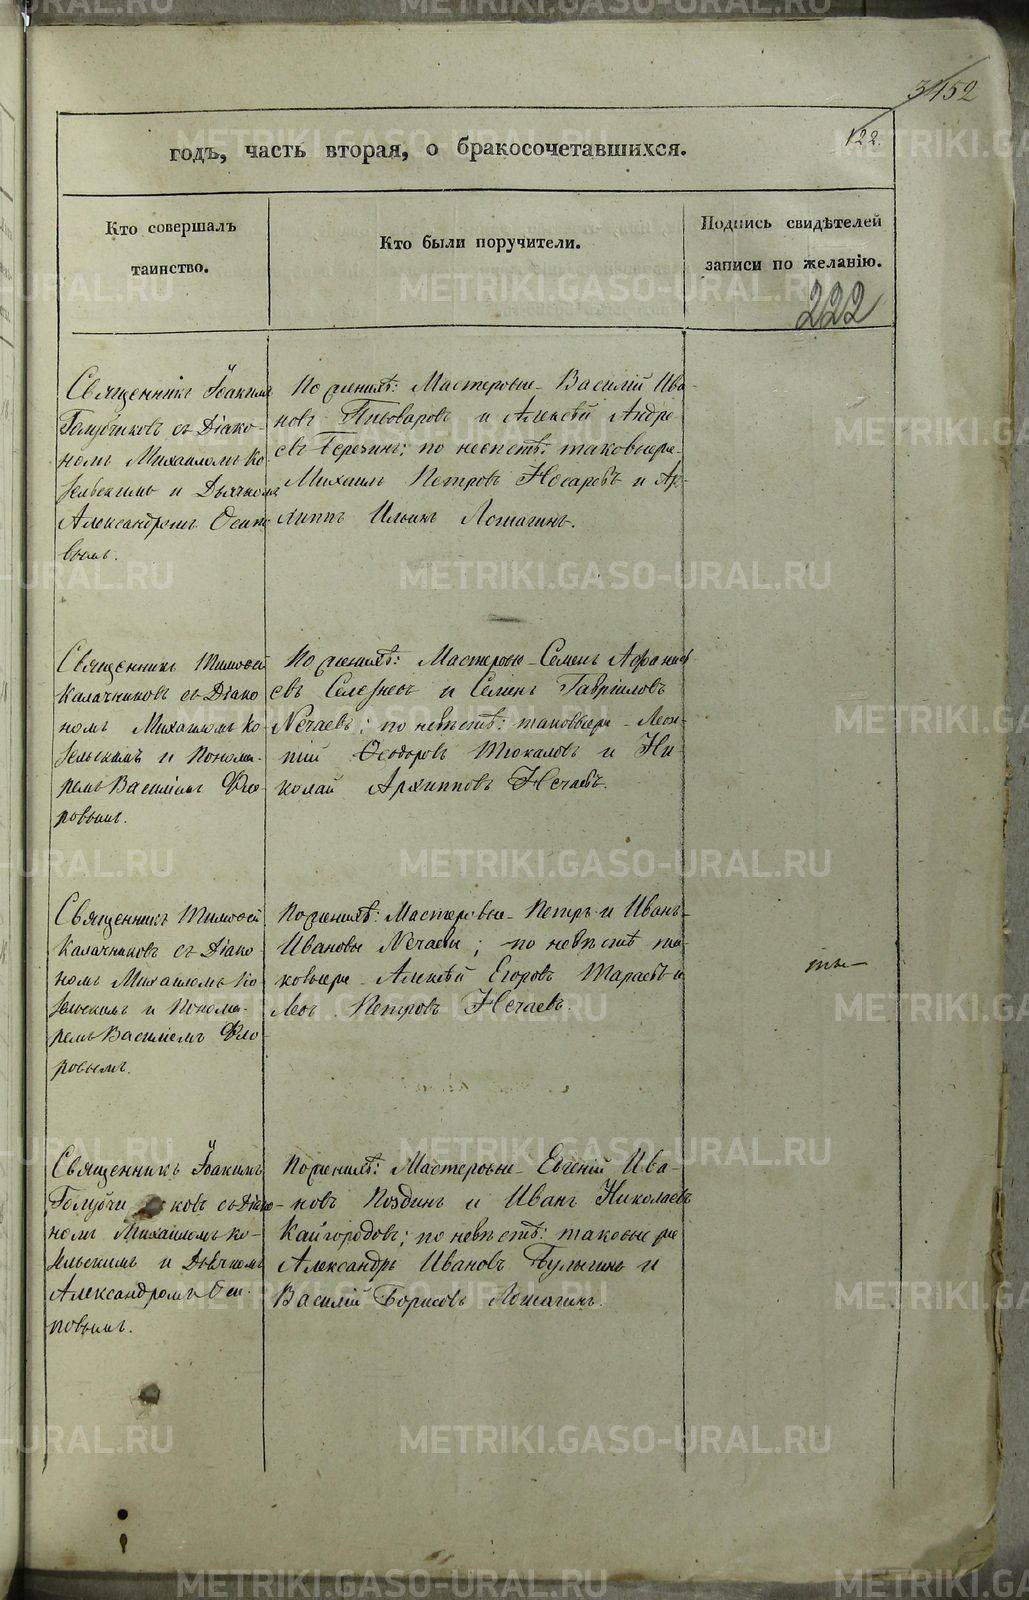 3452
122.
годъ, часть вторая, о бракосочетавшихся.
Кто совершалъ
таинство.
Кто были поручители.
Подпись свидѣтелей
записи по желанію.
222
Священникъ Іоакимъ
Голубчиковъ съ Діако-
номъ Михаиломъ Ко
зельскимъ и Дьячкомъ
Александромъ Осипо
вымъ.
По женихѣ: Мастеровые Василій Ива-
новъ Пивоваровъ и Алексѣй Андре
евъ Березинъ; по невѣстѣ: таковыеже
Михаилъ Петровъ Носаревъ и Ар-
хиппъ Ильинъ Лошагинъ.
Священникъ Тимофей
Калачниковъ съ Діако
номъ Михаиломъ Ко
зельскимъ и Понома-
ремъ Василіемъ Фло
ровымъ.
По женихѣ: Мастеровые Семенъ Афанась
евъ Селезневъ и Семенъ Гавріиловъ
Нечаевъ; по невѣстѣ: таковыеже Леон-
тій Ѳеодоровъ Тюкаловъ и Ни-
колай Архипповъ Нечаевъ.
Священникъ Тимофей
Калачниковъ съ Діако-
номъ Михаиломъ Ко
зельскимъ и Понома-
ремъ Василіемъ Фло-
ровымъ.
По женихѣ: Мастеровые Петръ и Иванъ
Ивановы Нечаевы; по невѣстѣ та-
ковыеже Алексѣй Егоровъ Тараевъ и
Левъ Петровъ Нечаевъ.
Священникъ Іоакимъ
Голубчиковъ съ Діако-
номъ Михаиломъ Ко-
зельскимъ и Дьячкомъ
Александромъ Оси-
повымъ.
По женихѣ: Мастеровые Евгеній Ива-
новъ Поздинъ и Иванъ Николаевъ
Кайгородовъ; по невѣстѣ: таковые же
Александръ Ивановъ Булыгинъ и
Василій Борисовъ Лошагинъ.
METRIKI.GASO-URAL.RU